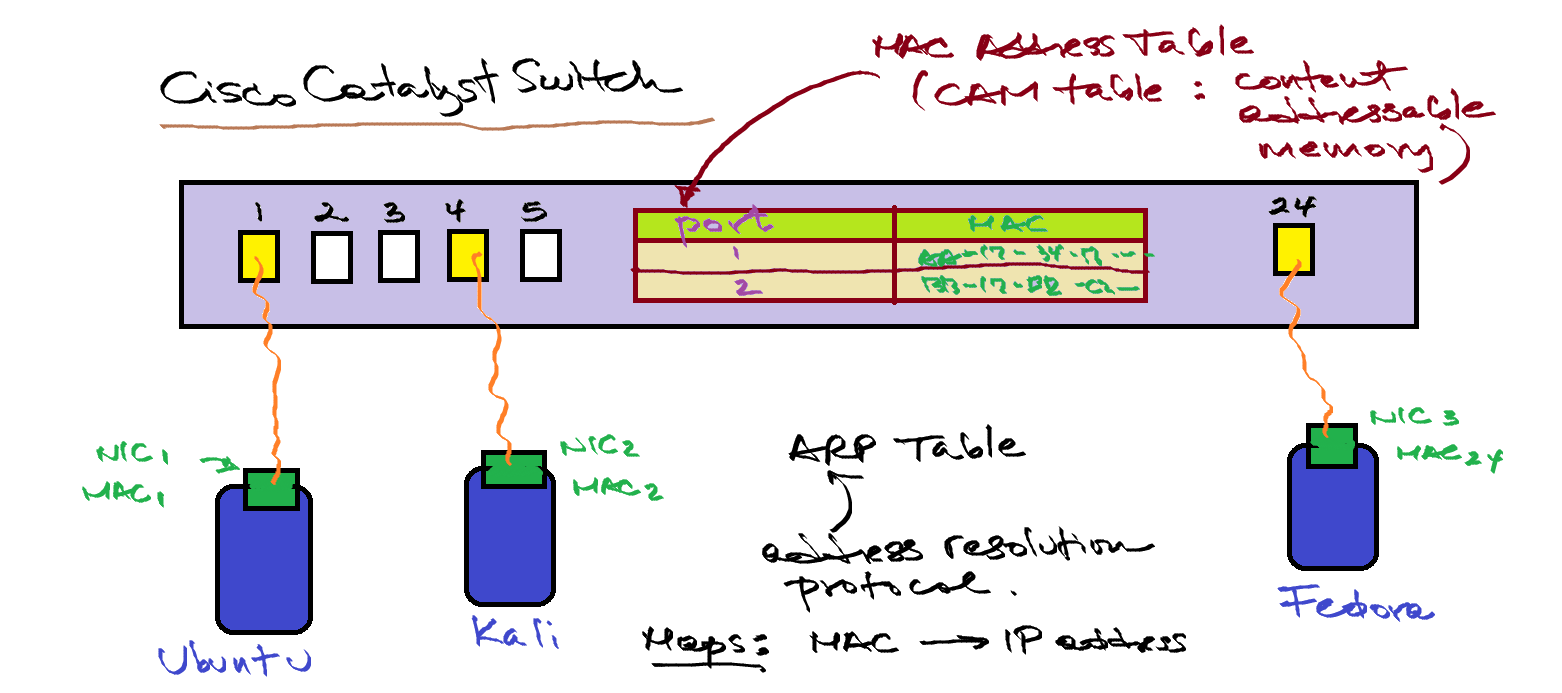 Cisco Catalyst Switch
MAC Address Table
(CAM table : content
addressable
memory)
1 2 3 4 5
port MAC
1 AA-17-34-17-...
2 BB-17-DD-C2-
24
NIC1
MAC1
NIC2
MAC2
NIC3
MAC24
ARP Table
address resolution
protocol.
Maps: MAC → IP address
Ubuntu
Kali
Fedora